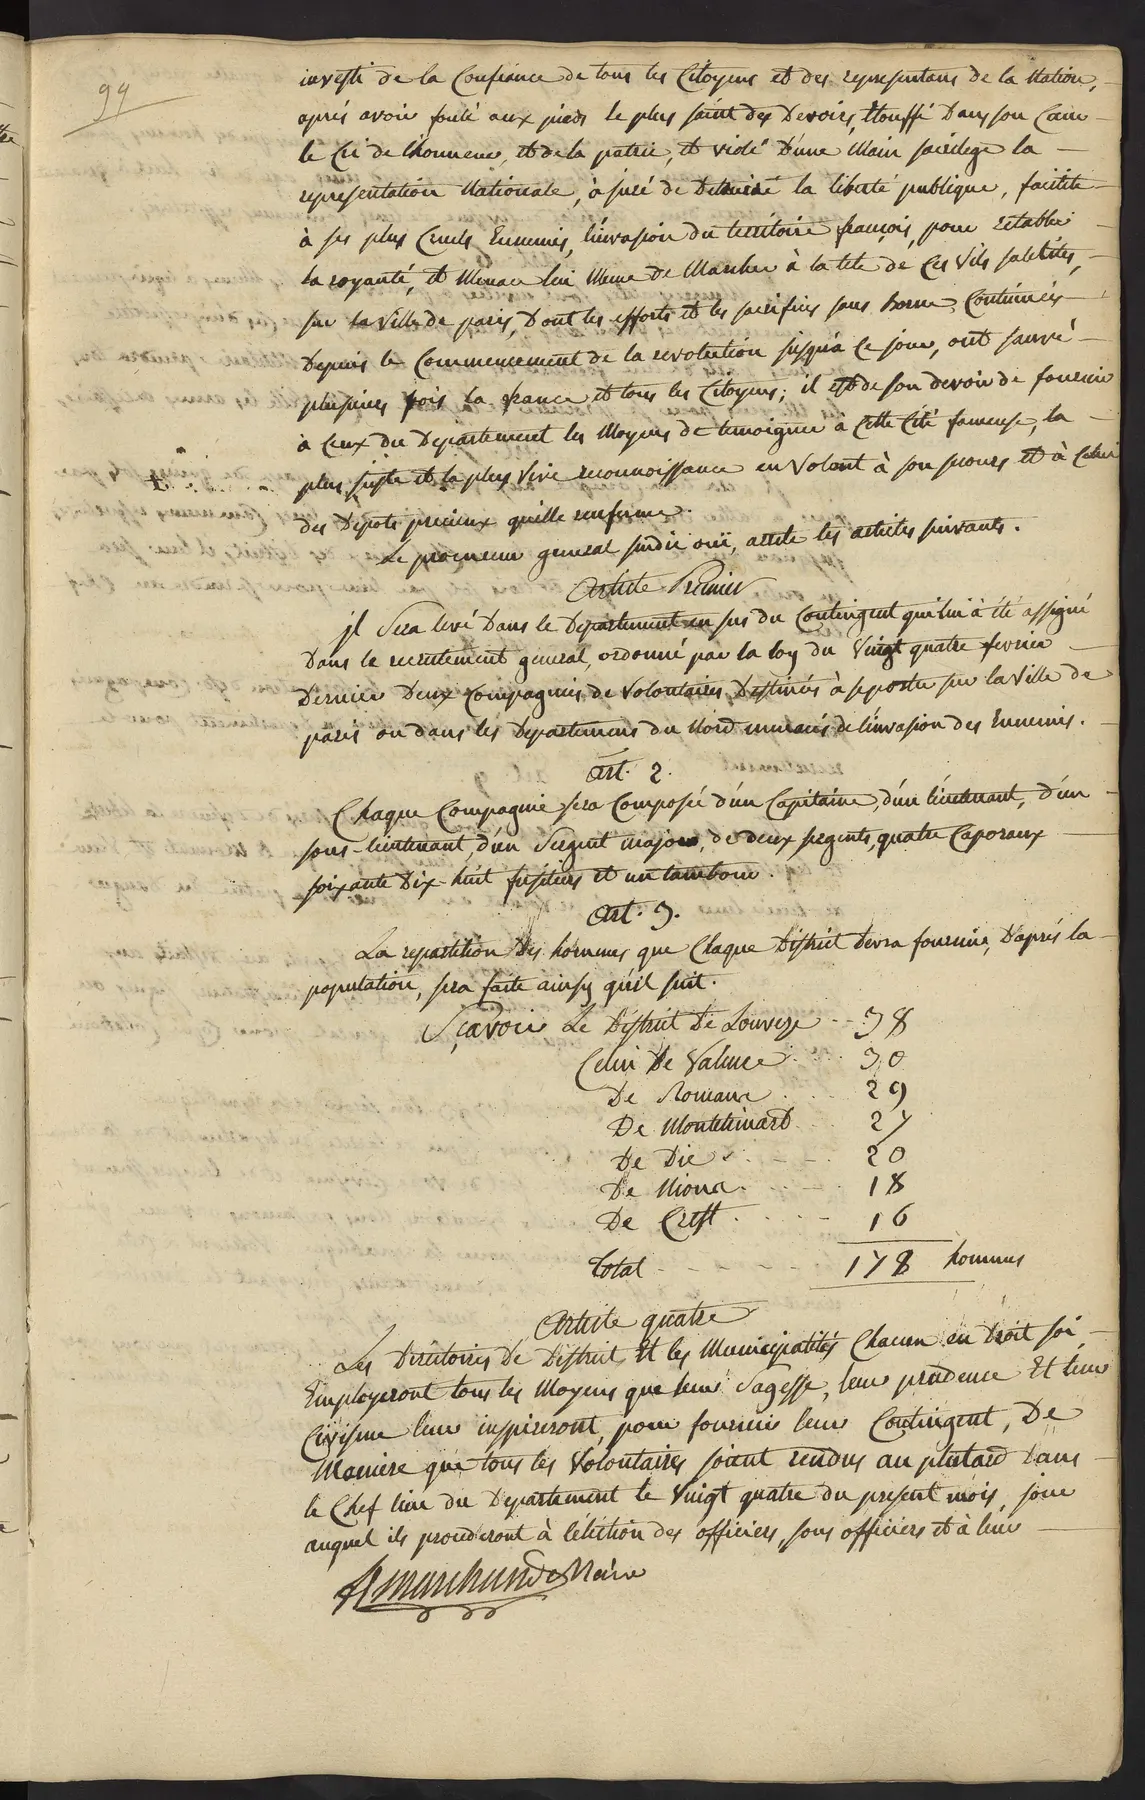 99
investi de la Confiance de tous les Citoyens et des representans de la Nation,
aprés avoir foulé aux pieds le plus saint des Devoirs, Etouffé Dans son Cœur
le Cri de lhonneur, et de la patrie, et violé D'une Main sacrilege la
representation Nationale, à juré de Detruire la liberté publique, faciliter
à ses plus Cruels Ennemis, l'invasion du territoire françois, pour rétablir
la royauté, et Menace lui Meme de Marcher à la tete de Ces Vils satelites,
sur la Ville de paris, Dont les efforts et les sacrifices sans borne Continués
Depuis le Commencement de la revolution jusqu'a Ce jour, ont sauvé
plusieurs fois la france et tous les Citoyens; il est de son devoir de fournir
à Ceux du Departement les Moyens de temoigner à Cette Cité fameuse, la
plus juste et la plus Vive reconnoissance en Volant à son secours et à Celui
des Depots precieux qu'elle renferme.
Le procureur general sindic ouï, arrete les articles suivants.
Article Premier
jl Sera levé Dans le Departement en sus du Contingent qui lui à été assigné
Dans le recrutement general, ordonné par la loy du Vingt quatre fevrier
Dernier Deux Compagnies de Volontaires, Destinés à se porter sur la Ville de
paris ou dans les Departemens du Nord menacés de l'invasion des Ennemis.
Art. 2.
Chaque Compagnie sera Composée d'un Capitaine, d'un lieutenant, d'un
sous-lieutenant, d'un Sergent major, de deux sergents, quatre Caporaux
soixante Dix-huit fusiliers et un tambour.
Art. 3.
La repartition Des hommes que Chaque District Devra fournir, D'aprés la
population, sera faite ainsy qu'il suit.
Sçavoir Le District De Louveze 38
Celui De Valence 30
De Romans 29
De Montelimart 27
De Die 20
De Nions 18
De Crest 16
Total 178 hommes
Article quatre
Les Directoires De District, Et les Municipalités Chacun en Droit soi,
Employeront tous les Moyens que leur Sagesse, leur prudence Et leur
Civisme leur inspireront, pour fournir leur Contingent, De
Maniere que tous les Volontaires soient rendus au plutard Dans
le Chef lieu du Departement le Vingt quatre du present mois, jour
auquel ils procederont à l'élection des officiers, sous officiers et à leur
Marchand Maire